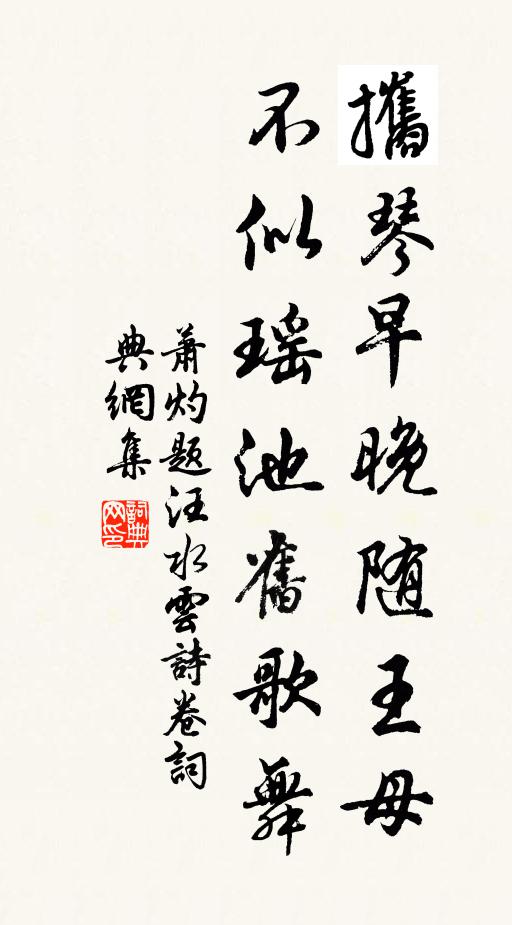 攜琴早晚随王母
不似瑶池舊歌舞
蕭灼题汪水雲詩卷詞
典網集
詞典
网印